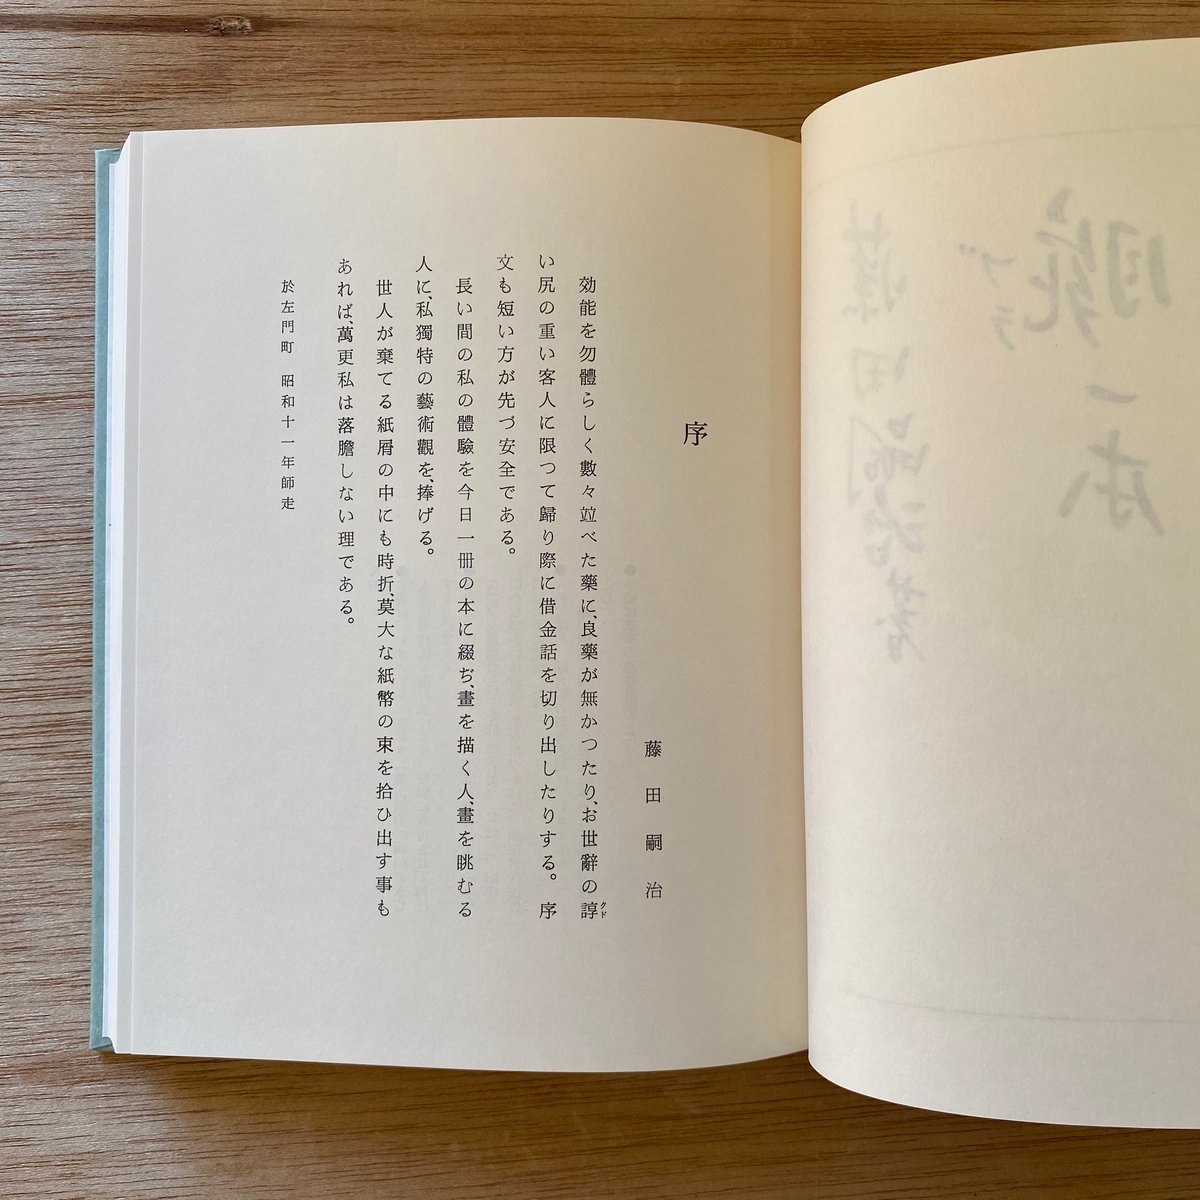 序
藤田嗣治
効能を勿體らしく數々竝べた藥に、良藥が無かつたり、お世辭の諄クド
い尻の重い客人に限つて歸り際に借金話を切り出したりする。序
文も短い方が先づ安全である。
長い間の私の體驗を今日一冊の本に綴ぢ、畫を描く人、畫を眺むる
人に、私獨特の藝術觀を、捧げる。
世人が棄てる紙屑の中にも時折、莫大な紙幣の束を拾ひ出す事も
あれば、萬更私は落膽しない理である。
於左門町　昭和十一年師走